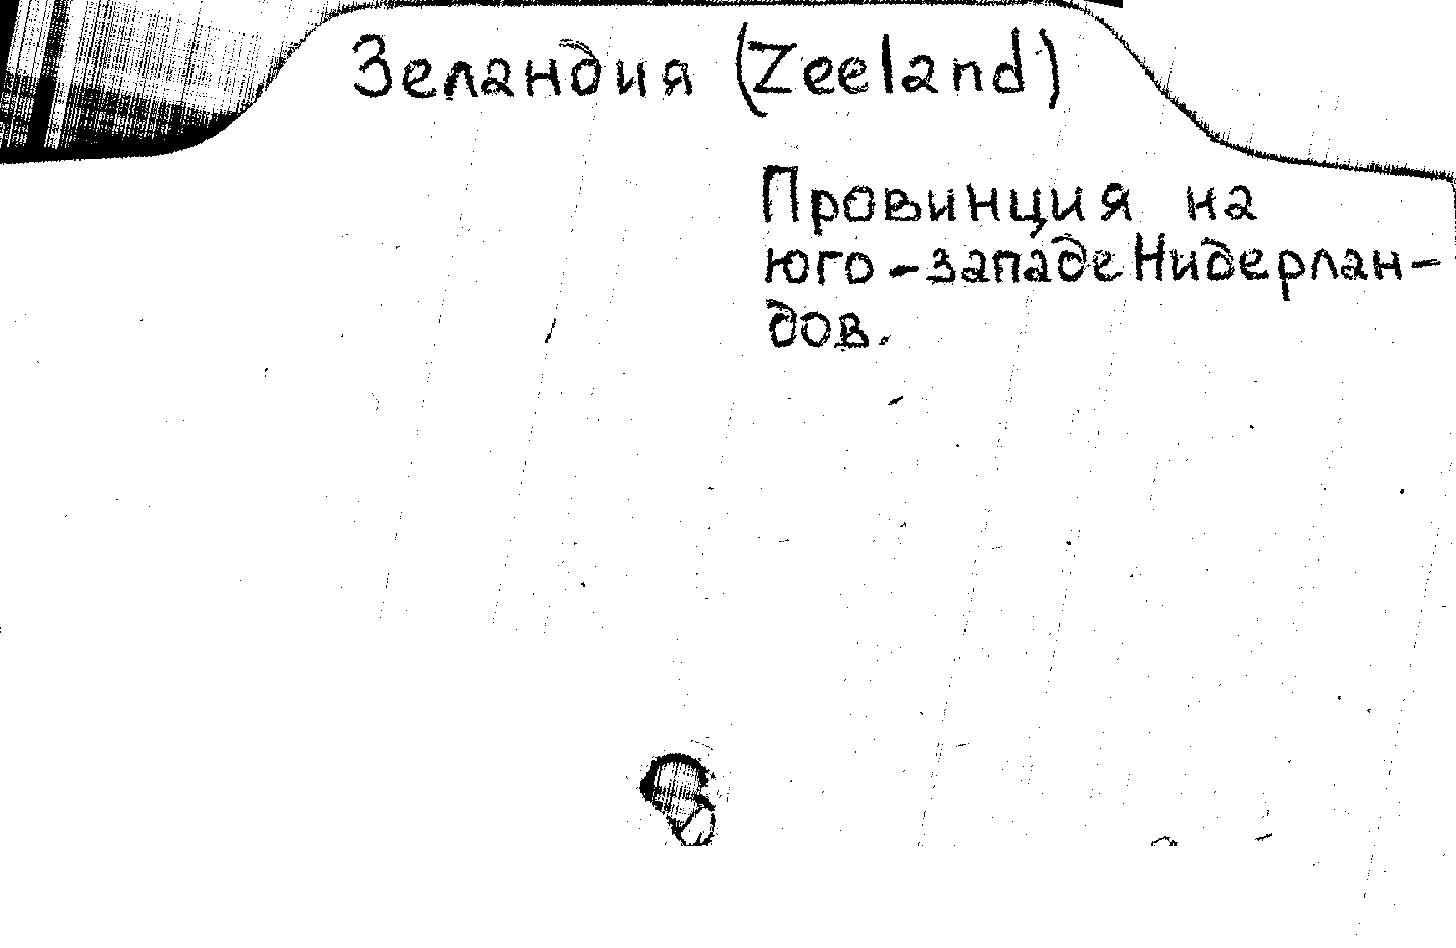 Зеландия (Zeeland)
Провинция на
юго-западе Нидерлан-
дов.